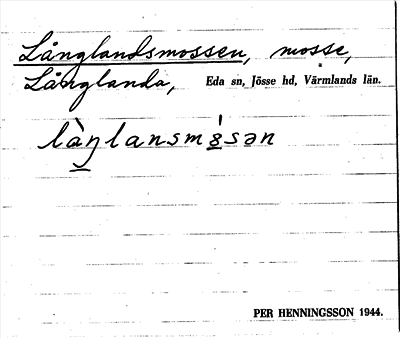 Långlandsmossen, mosse,
Långlanda, Eda sn, Jösse hd, Värmlands län.
là̱ŋlansmo̱̍sən
PER HENNINGSSON 1944.